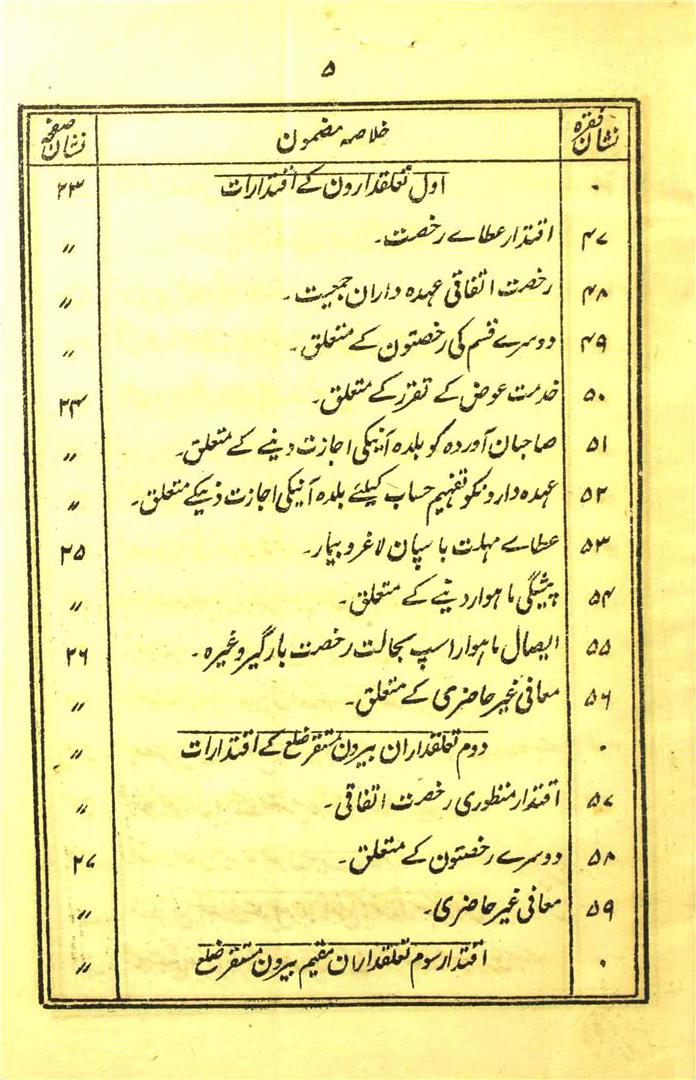 ۵
نشان فقرہ خلاصہ مضمون نشان صفحہ
۰ اول تعلقدارون کے اقتدارات ۲۳
۴۷ اقتدار عطاے رخصت۔ 〃
۴۸ رخصت اتفاقی عہدہ داران جمعیت۔ 〃
۴۹ دوسرے قسم کی رخصتون کے متعلق۔ 〃
۵۰ خدمت عوض کے تقرر کے متعلق۔ ۲۴
۵۱ صاحبان آوردہ کو بلدہ آنیکی اجازت دینے کے متعلق۔ 〃
۵۲ عہدہ دارونکو تفہیم حساب کیلئے بلدہ آنیکی اجازت دینیکے متعلق۔ 〃
۵۳ عطاے مہلت با سپان لاغر و بیمار۔ ۲۵
۵۴ پیشگی ماہوار دینے کے متعلق۔ 〃
۵۵ ایصال ماہوار اسپ بحالت رخصت بارگیر وغیرہ۔ ۲۶
۵۶ معافی غیر حاضری کے متعلق۔ 〃
۰ دوم تعلقداران بیرون مستقر ضلع کے اقتدارات 〃
۵۷ اقتدار منظوری رخصت اتفاقی۔ 〃
۵۸ دوسرے رخصتون کے متعلق۔ ۲۷
۵۹ معافی غیر حاضری۔ 〃
۰ اقتدار سوم تعلقداران مقیم بیرون مستقر ضلع 〃